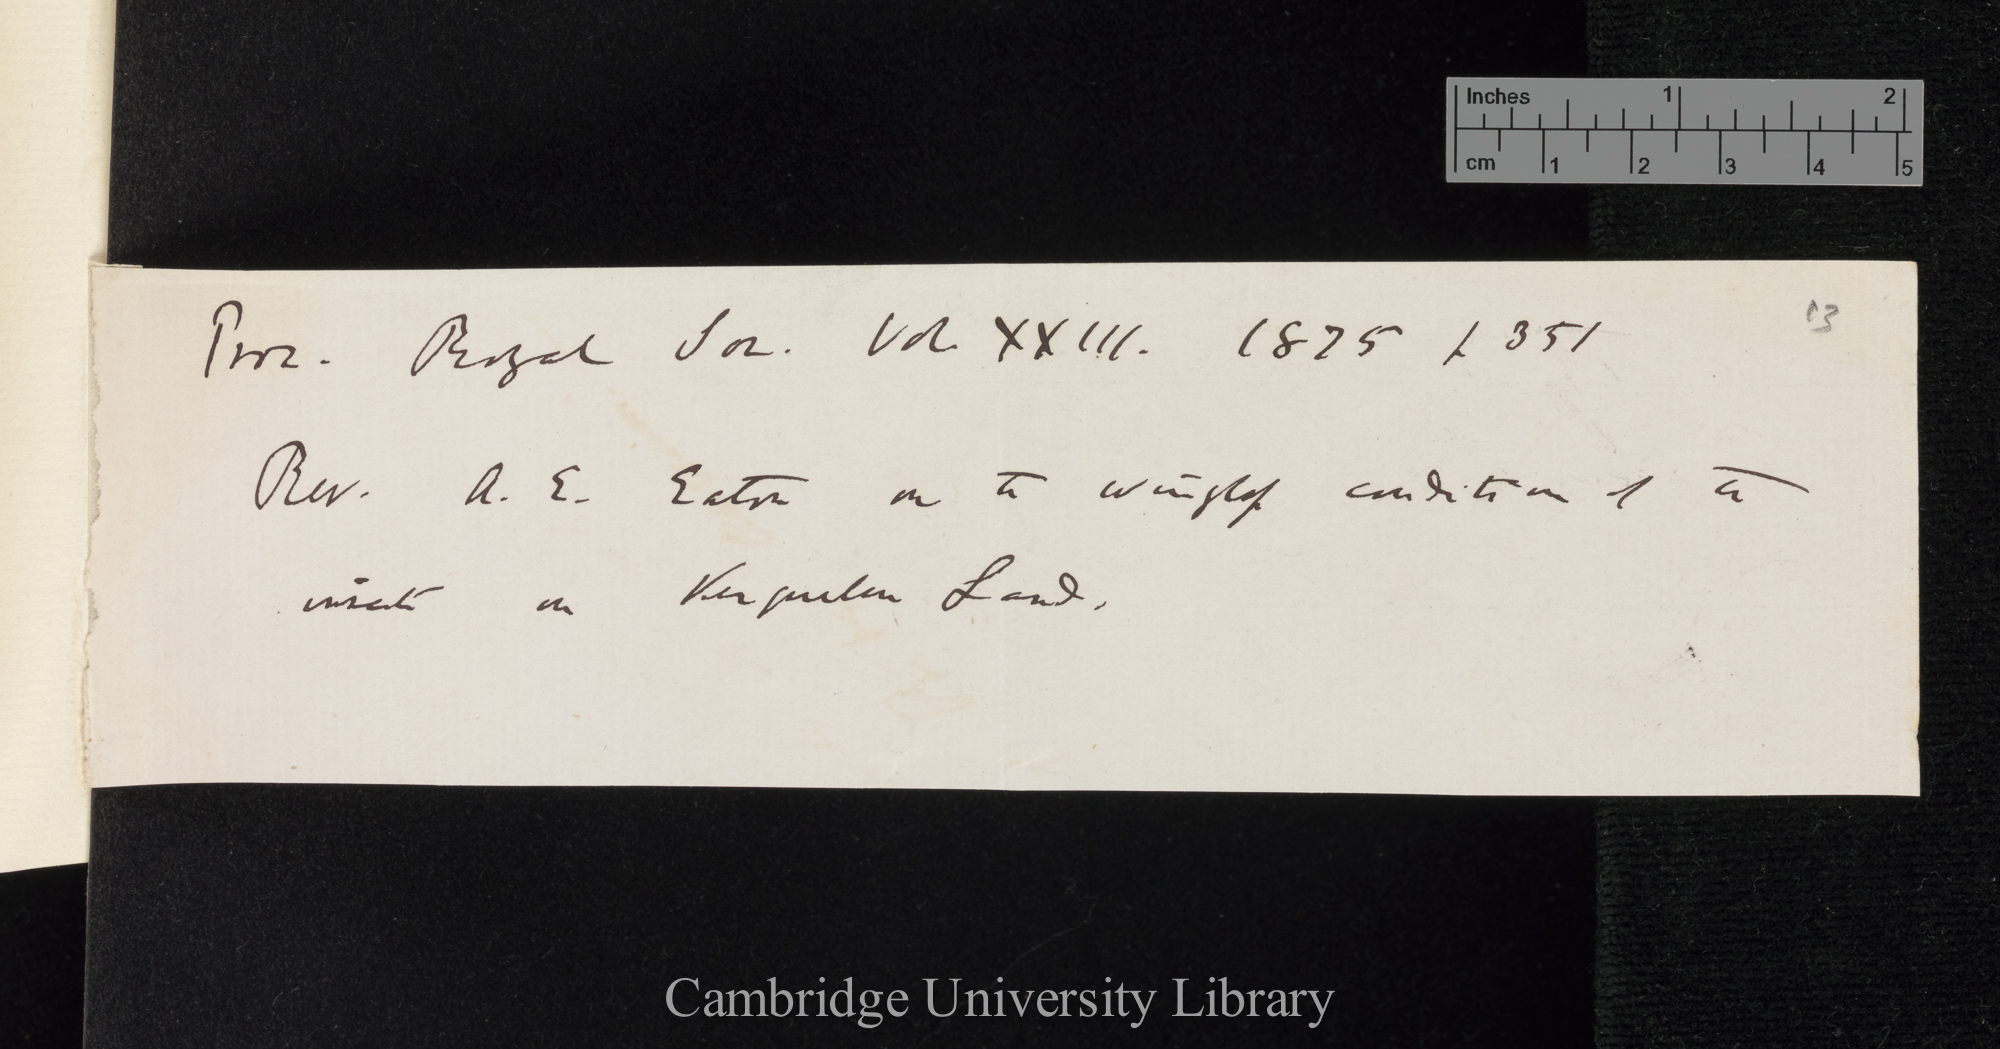 Inches 1 2
cm 1 2 3 4 5
13
Proc. Royal Soc. Vol. XXIII. 1875 p 351
Rev. A. E. Eaton on the wingless condition of the
insects on Kerguelen Land.
Cambridge University Library